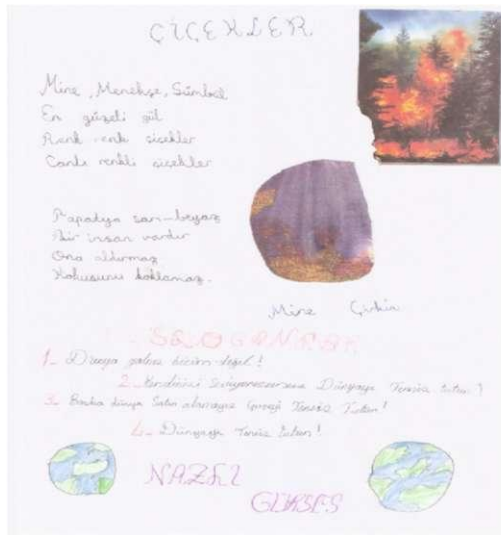 ÇİÇEKLER
Mine, Menekşe, Sümbül
En güzeli gül
Renk renk çiçekler
Canlı renkli çiçekler
Papatya sarı-beyaz
Bir insan vardır
Ona aldırmaz
Kokusunu koklamaz.
Mine
SLOGANLAR
1- Dünya yalnız bizim değil!
2- Kendinizi Seviyorsanız Dünyayı Temiz Tutun!
3- Başka dünya Satın alamayız Temiz Tutun!
4- Dünyayı Temiz Tutun!
NAZLI